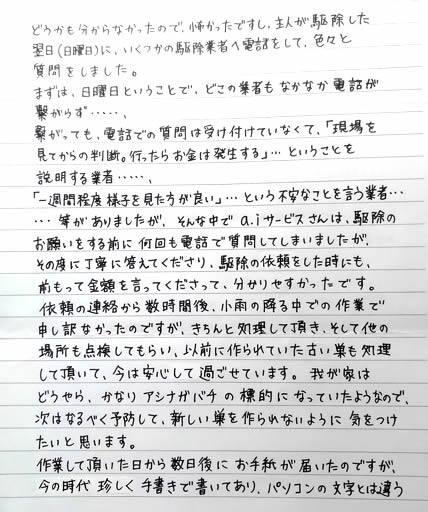 どうかも分からなかったので、怖かったですし、主人が駆除した
翌日(日曜日)に、いくつかの駆除業者へ電話をして、色々と
質問をしました。
まずは、日曜日ということで、どこの業者もなかなか電話が
繋がらず……、
繋がっても、電話での質問は受け付けていなくて、「現場を
見てからの判断。行ったらお金は発生する」…ということを
説明する業者……、
「一週間程度様子を見た方が良い」…という不安なことを言う業者…
…等がありましたが、そんな中でa.iサービスさんは、駆除の
お願いをする前に何回も電話で質問してしまいましたが、
その度に丁寧に答えてくださり、駆除の依頼をした時にも、
前もって金額を言ってくださって、分かりやすかったです。
依頼の連絡から数時間後、小雨の降る中での作業で
申し訳なかったのですが、きちんと処理して頂き、そして他の
場所も点検してもらい、以前に作られていた古い巣も処理
して頂いて、今は安心して過ごせています。我が家は
どうやら、かなりアシナガバチの標的になっていたようなので、
次はなるべく予防して、新しい巣を作られないように気をつけ
たいと思います。
作業して頂いた日から数日後にお手紙が届いたのですが、
今の時代珍しく手書きで書いてあり、パソコンの文字とは違う